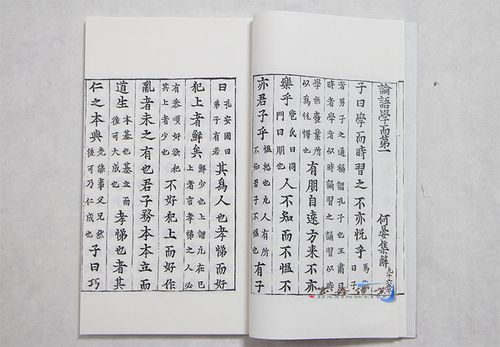 論語學而第一 何晏集解 凡十六章
子曰學而時習之不亦悅乎 馬
曰子
者男子之通稱謂孔子也王肅曰
時者學者以時誦習之誦習以時
學無廢業所
以為悅懌 有朋自遠方來不亦
樂乎 苞氏曰同
門曰朋也 人不知而不慍不
亦君子乎 慍怒也凡人有所
不知君子不慍也 有子
曰 孔安國曰
弟子有若 其為人也孝悌而好
犯上者鮮矣 鮮少也上謂凡在己
上者言孝悌之人必
有恭順好欲犯
其上者少也 不好犯上而好作
亂者未之有也君子務本本立而
道生 本基也基立而
後可大成也 孝悌也者其
仁之本與 先能事父兄然
後可乃仁成也 子曰巧